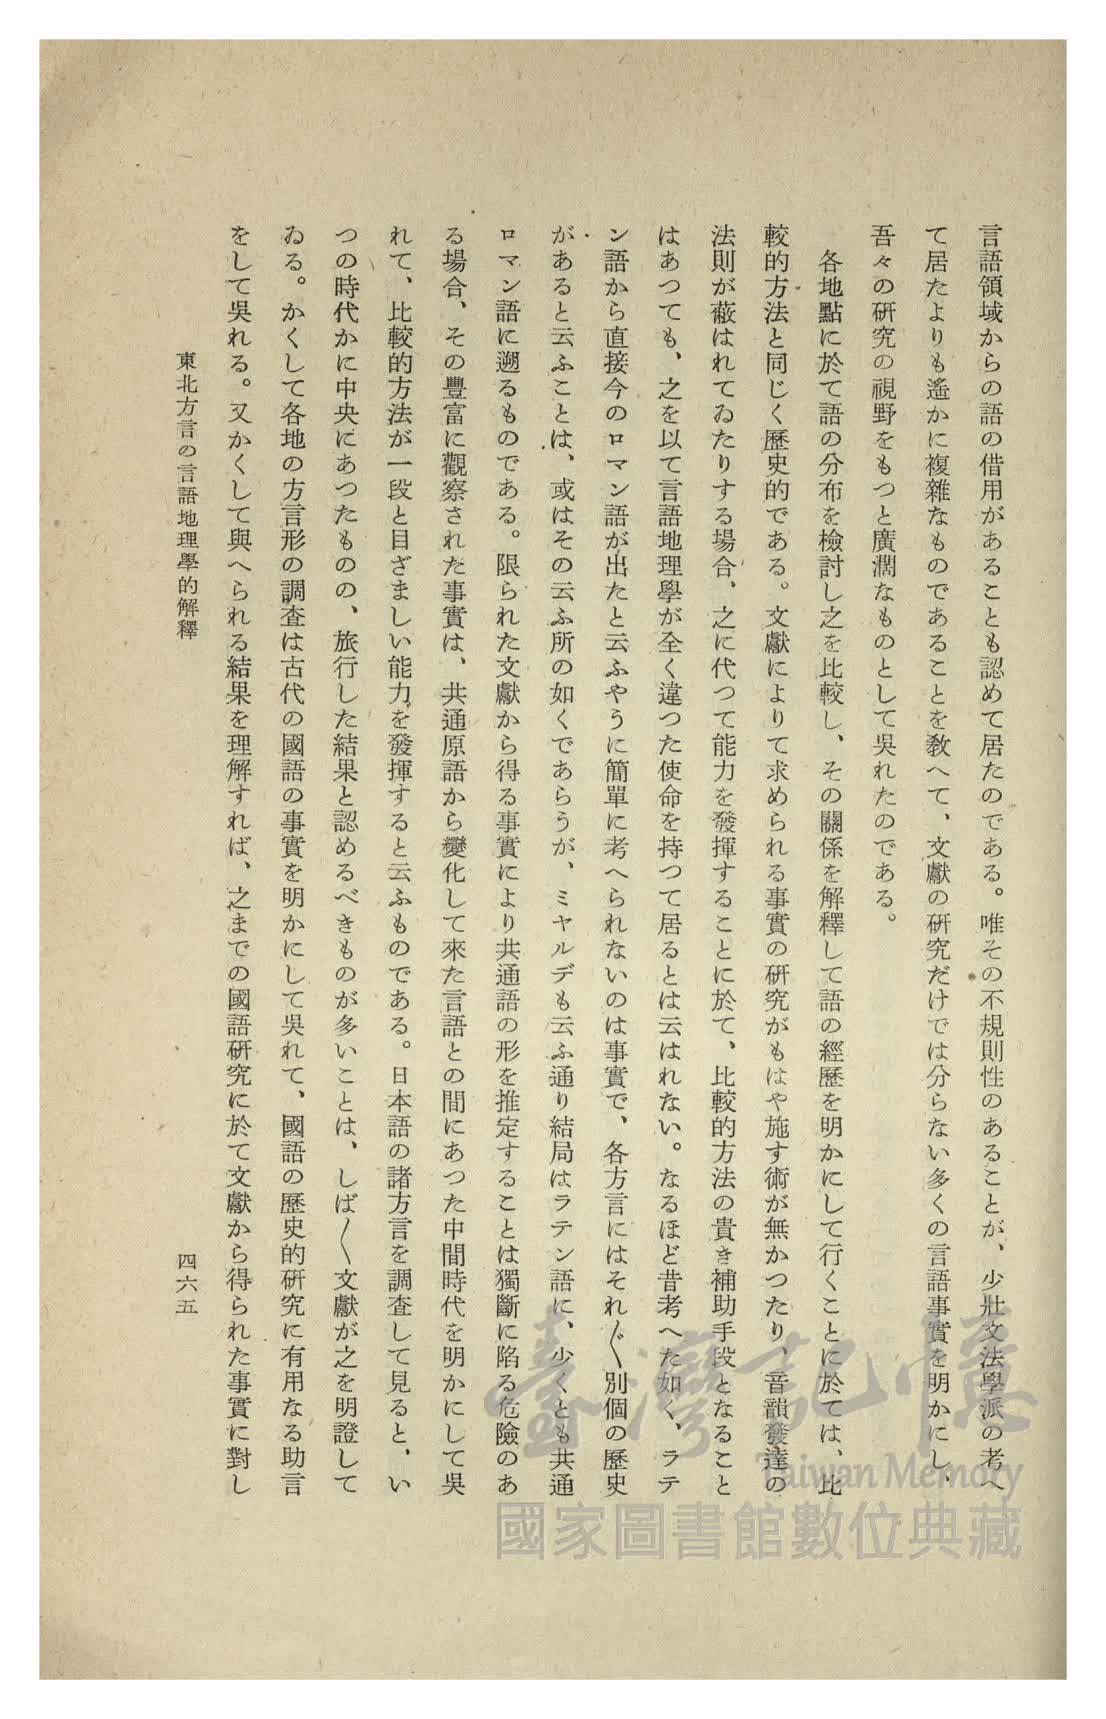 言語領域からの語の借用があることも認めて居たのである。唯その不規則性のあることが、少壯文法學派の考へ
て居たよりも遙かに複雜なものであることを敎へて、文獻の硏究だけでは分らない多くの言語事實を明かにし、
吾々の硏究の視野をもつと廣濶なものとして吳れたのである。
各地點に於て語の分布を檢討し之を比較し、その關係を解釋して語の經歷を明かにして行くことに於ては、比
較的方法と同じく歷史的である。文獻によりて求められる事實の硏究がもはや施す術が無かつたり、音韻發達の
法則が蔽はれてゐたりする場合、之に代つて能力を發揮することに於て、比較的方法の貴き補助手段となること
はあつても、之を以て言語地理學が全く違つた使命を持つて居るとは云はれない。なるほど昔考へた如く、ラテ
ン語から直接今のロマン語が出たと云ふやうに簡單に考へられないのは事實で、各方言にはそれ〲別個の歷史
があると云ふことは、或はその云ふ所の如くであらうが、ミヤルデも云ふ通り結局はラテン語に、少くとも共通
ロマン語に遡るものである。限られた文獻から得る事實により共通語の形を推定することは獨斷に陷る危險のあ
る場合、その豐富に觀察された事實は、共通原語から變化して來た言語との間にあつた中間時代を明かにして吳
れて、比較的方法が一段と目ざましい能力を發揮すると云ふものである。日本語の諸方言を調査して見ると、い
つの時代かに中央にあつたものの、旅行した結果と認めるべきものが多いことは、しば〱文獻が之を明證して
ゐる。かくして各地の方言形の調査は古代の國語の事實を明かにして吳れて、國語の歷史的硏究に有用なる助言
をして吳れる。又かくして與へられる結果を理解すれば、之までの國語硏究に於て文獻から得られた事實に對し
東北方言の言語地理學的解釋
四六五
臺灣記憶
Taiwan Memory
國家圖書館數位典藏